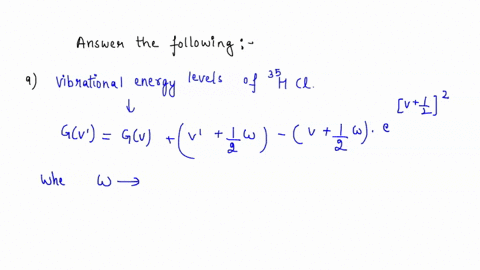 Answer the following :-
a) Vibrational energy levels of ³⁵H Cl.
↓
G(v') = G(v) + (v' + 1/2 ω) - (v + 1/2 ω) . e^[v+1/2]^2
Whe ω →